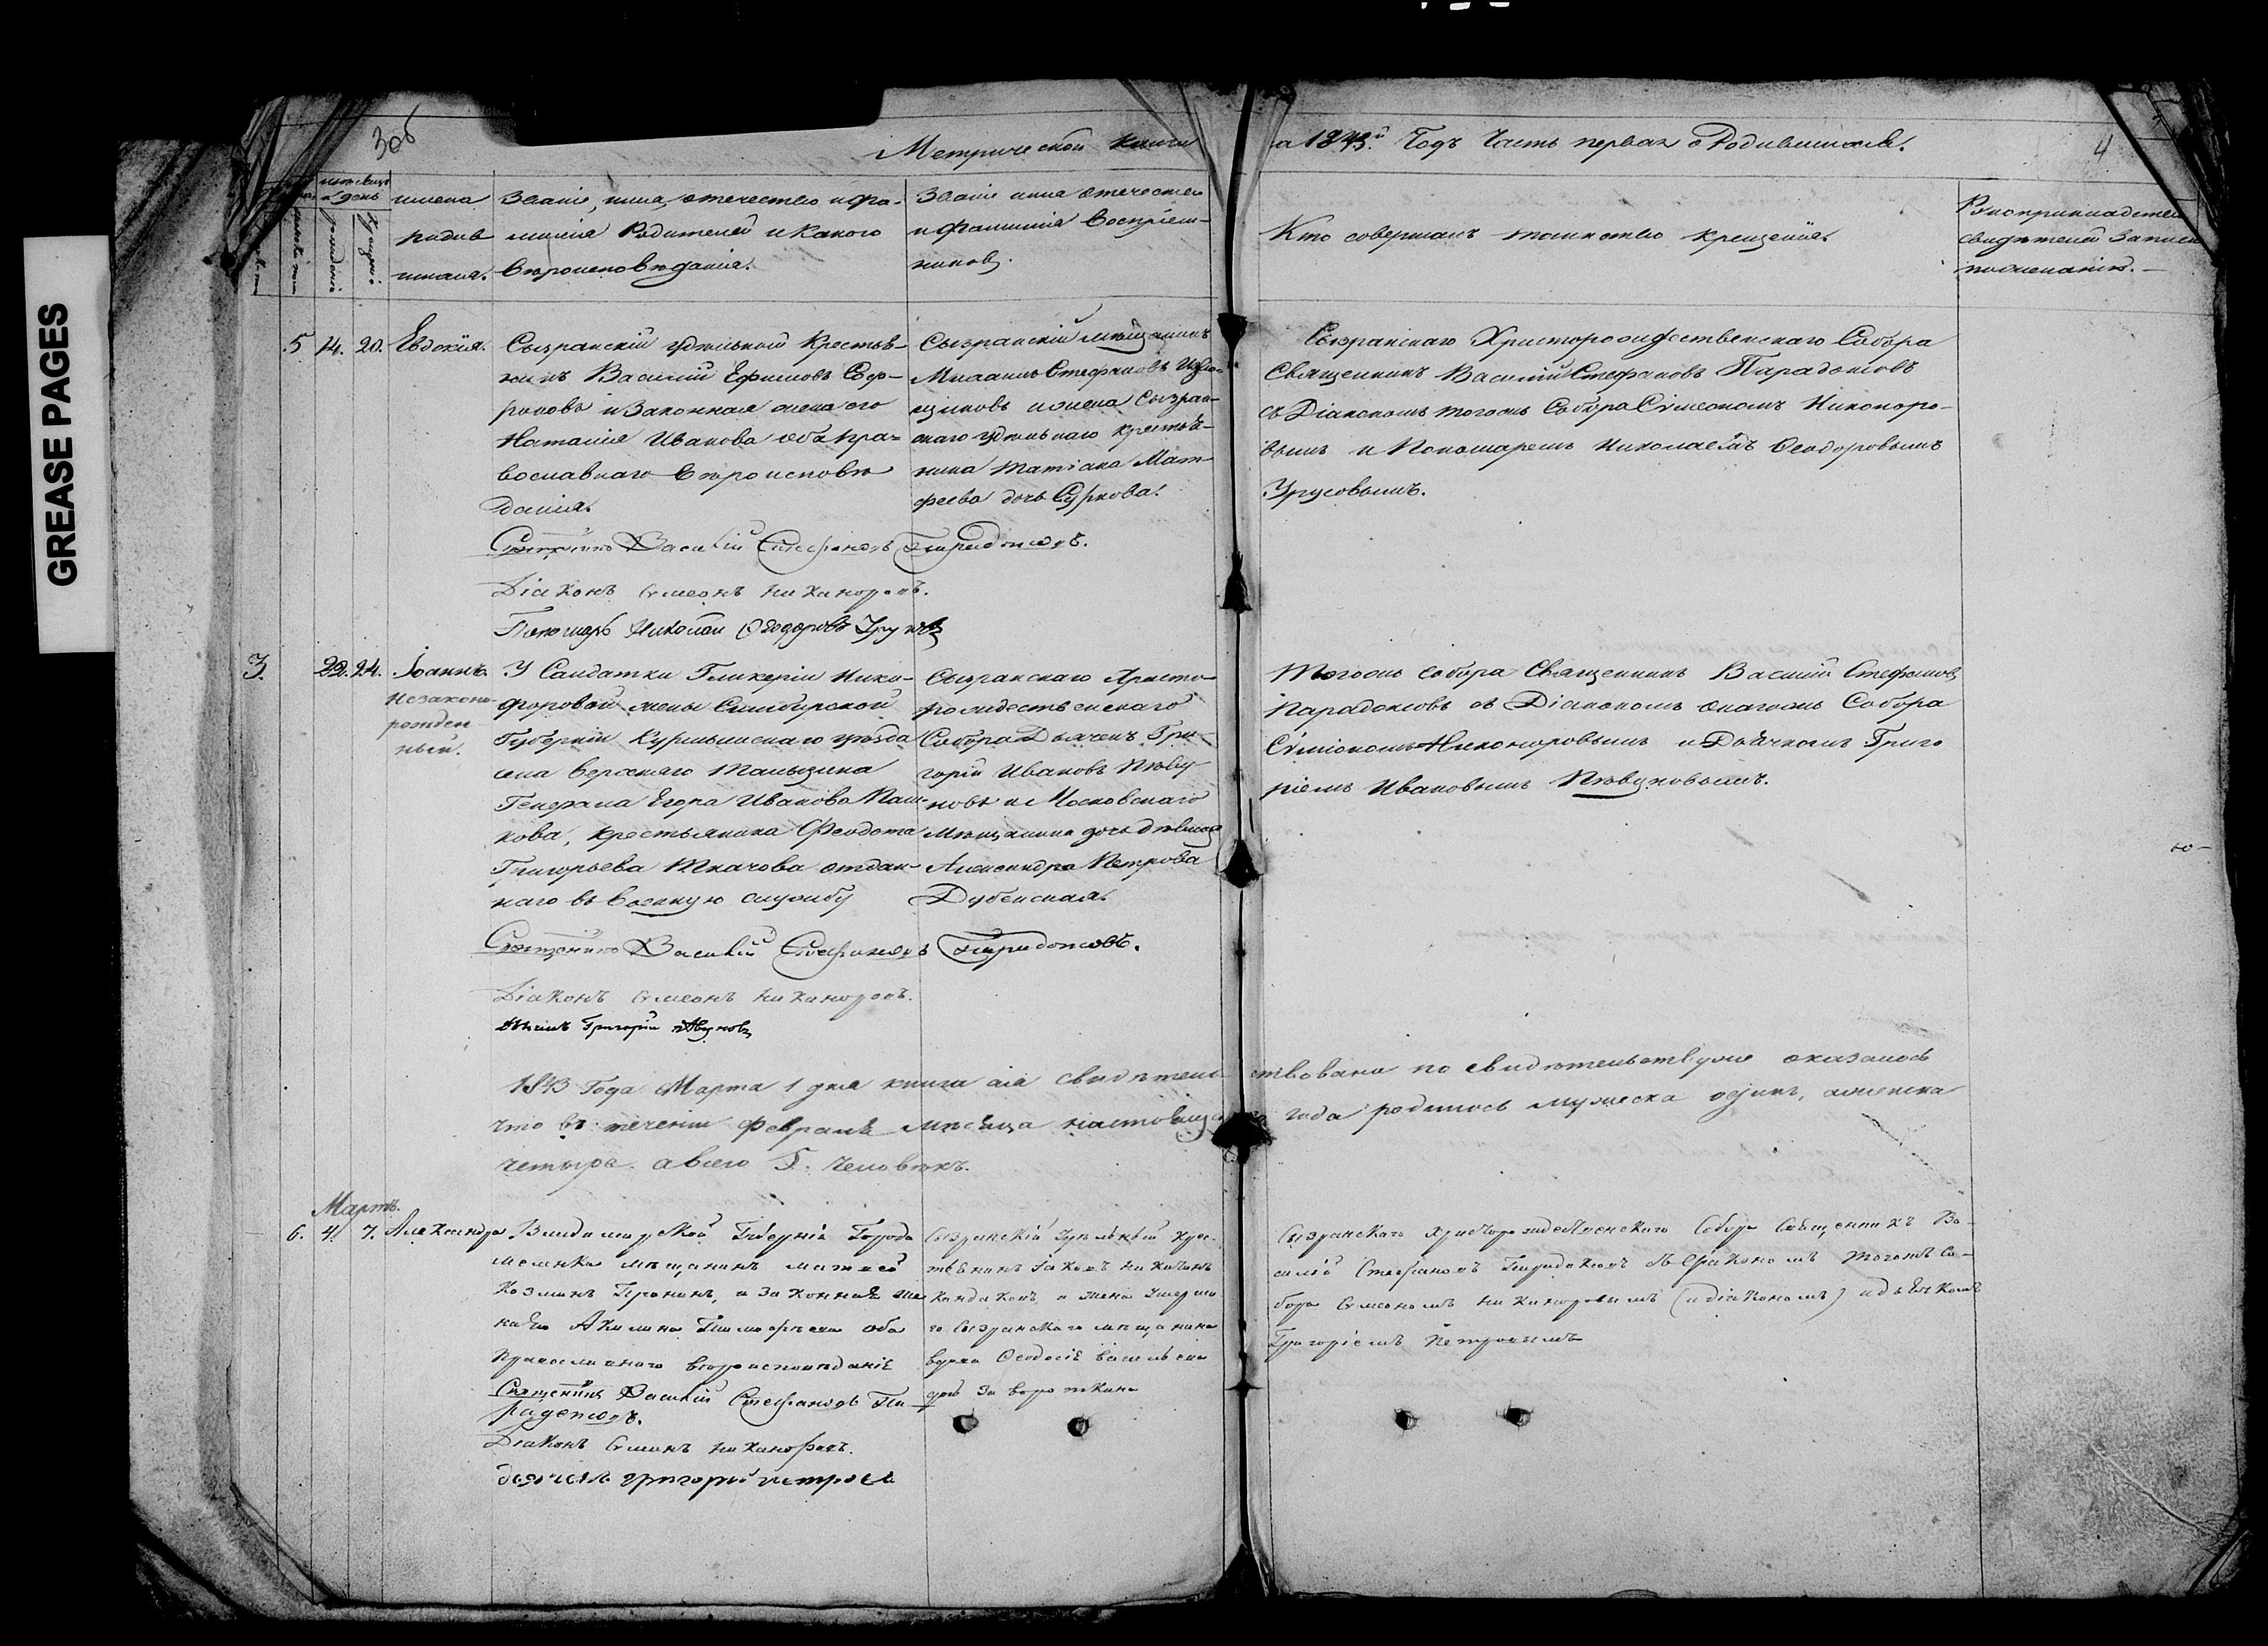 GREASE PAGES
3об
4
Метрической книги на 1843й Годъ Часть первая о Родившихся.
месяцъ
и день
имена
родив
шихся.
Званіе, имя, отечество и фа-
милія Родителей и какого
вероисповеданія.
Званіе имя отечество
и фамилія Воспріем-
никовъ.
Кто совершалъ таинство крещенія.
свидетелей записи
5 14. 20. Евдокія.
Сызранскій удельной Крестья-
нинъ Василій Ефимовъ
и законная жена его
Наталія Иванова оба пра-
вославнаго вероиспове
данія.
Сызранскій мещанинъ
Стефановъ
и жена Сызран-
скаго удельнаго крестья-
нина Татіана Мат
феева дочь Суркова.
Сызранскаго Христорождественскаго Собора
Священникъ Василій Стефановъ Парадоксовъ
съ Діакономъ тогожъ Собора Сѵмеономъ Никоноро-
вымъ и Пономаремъ Николаемъ Ѳеодоровымъ
Урусовымъ.
Священникъ Василій Стефановъ Парадоксовъ.
Діаконъ Симеонъ Никаноровъ.
Пономарь Николай Ѳеодоровъ Урусовъ
3. 22. 24. Іоаннъ.
Незаконо-
рожден
ный.
У Салдатки Гликеріи Ники-
форовой жены Симбирской
Губерніи Курмышскаго уезда
села верхняго Талызина
Генерала Егора Иванова Паш
кова, крестьянина Феодота
Григорьева Ткачова отдан-
наго въ военную службу
Сызранскаго Христо-
рождественскаго
Собора Дьячекъ Гри-
горій Ивановъ Певу-
новъ и Московскаго
Мещанина дочь девица
Александра Петрова
Дубенская.
Тогожъ Собора Священникъ Василій Стефановъ
Парадоксовъ съ Діакономъ онагожъ Собора
Сѵміономъ Никоноровымъ и Дьячкомъ Григо
ріемъ Ивановымъ Певуновымъ.
Священникъ Василій Стефановъ Парадоксовъ.
Діаконъ Симеонъ Никаноровъ.
Дьячекъ Григорій Певуновъ
1843 Года Марта 1 дня книга сія свидетельствована по свидетельству же оказалось
что въ теченіи Февраля месяца настоящаго года родилось мужеска одинъ, а женска
четыре. а всего 5. человекъ.
Мартъ.
6. 4. 7. Александра
Владимирской Губерніи Города
Меленки мещанинъ Матвей
Козминъ Пронинъ, и законная же
на его Акилина Тимофеева оба
православнаго вероисповеданіе
Сызранскій Удельный Крес-
тьянинъ Іаковъ Никитинъ
и жена Умерша
го Сызранскаго мещанина
Ѳеодосіе Васильева
дочь
Сызранскаго Христорождественскаго Собора Священникъ Ва-
силій Стефановъ Парадоксовъ съ Діакономъ тогожъ Со-
бора Симеономъ Никаноровымъ (и діакономъ) и дьячкомъ
Григоріемъ Петровымъ
Священникъ Василій Стефановъ Па-
радоксовъ.
Діаконъ Симеонъ Никаноровъ.
дьячекъ григорій петровъ